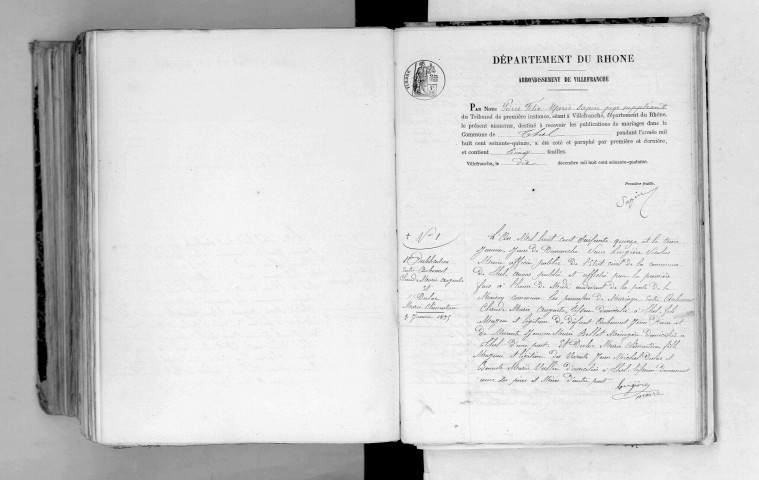 DÉPARTEMENT DU RHONE
ARRONDISSEMENT DE VILLEFRANCHE
TIMBRE
PAR NOUS Pierre Félix Marie juge suppléant
du Tribunal de première instance, séant à Villefranche, département du Rhône,
le présent REGISTRE, destiné à recevoir les publications de mariages dans la
Commune de Thel pendant l'année mil
huit cent soixante-quinze, a été coté et paraphé par première et dernière,
et contient cinq feuilles.
Villefranche, le dix décembre mil huit cent soixante-quatorze.
Première feuille.
N° 1
1e Publication
entre
Claude Marie Auguste
et
Dulac
Marie Clémentine
3 Janvier 1875
L'An Mil huit cent soixante quinze et le trois
Janvier Jour de Dimanche Nous Nicolas
Maire officier public de l'état civil de la commune
de Thel avons publié et affiché pour la première
fois à l'heure de Midi au devant de la porte de la
Maison commune les promesses de Mariage entre
Claude Marie Auguste domicilié à Thel fils
Majeur et légitime de défunt Jean et
de vivante Marie domiciliée à
Thel d'une part. Et Dulac Marie Clémentine fille
Mineure et légitime des vivants Jean Michel Dulac et
Marie domiciliés à Thel
avec ses père et Mère d'autre part
maire